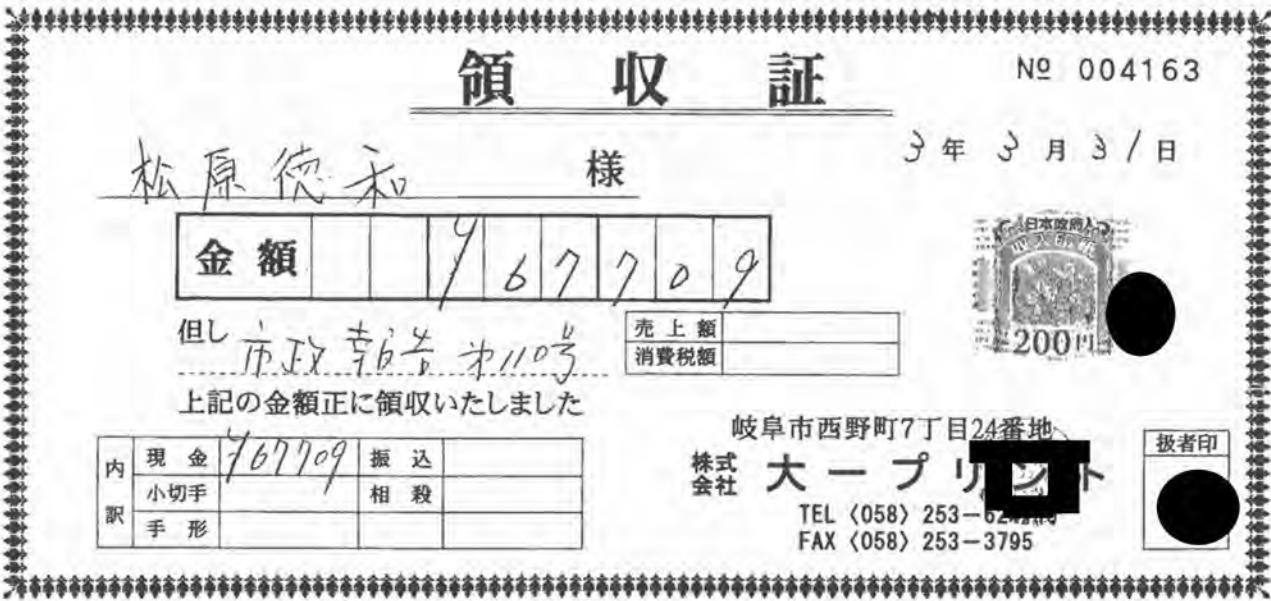 領収証
№ 004163
3年3月31日
松原徳和 様
金額 ¥67709
但し 市政報告 第110号
売上額
消費税額
上記の金額正に領収いたしました
日本政府
収入印紙
200円
内訳
現金 ¥67709 振込
小切手 相殺
手形
岐阜市西野町7丁目24番地
株式会社 大一プリント
TEL〈058〉253-62
FAX〈058〉253-3795
扱者印